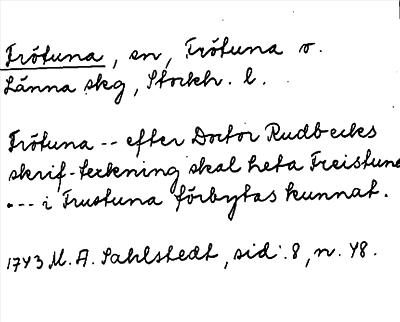 Frötuna, sn, Frötuna o.
Länna skg, Stockh. l.
Frötuna -- efter Doctor Rudbecks
skrif-teckning skal heta Freistuna
--- i Frustuna förbytas kunnat.
1743 M. A. Sahlstedt, sid. 8, n. 48.